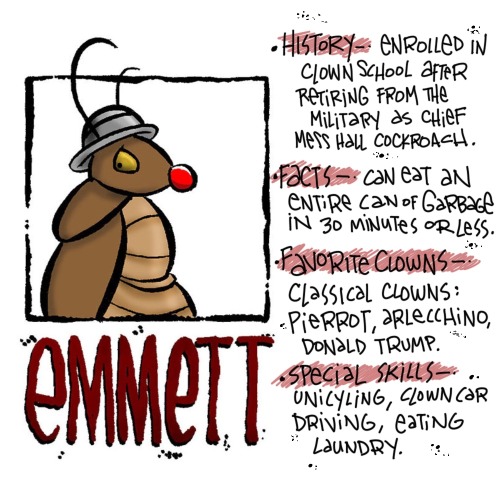 • HISTORY— ENROLLED IN
CLOWN SCHOOL AFTER
RETIRING FROM THE
MILITARY AS CHIEF
MESS HALL COCKROACH.
• FACTS— CAN EAT AN
ENTIRE CAN OF GARBAGE
IN 30 MINUTES OR LESS.
• FAVORITE CLOWNS—
CLASSICAL CLOWNS:
PIERROT, ARLECCHINO,
DONALD TRUMP.
• SPECIAL SKILLS—
UNICYLING, CLOWN CAR
DRIVING, EATING
LAUNDRY.
EMMETT